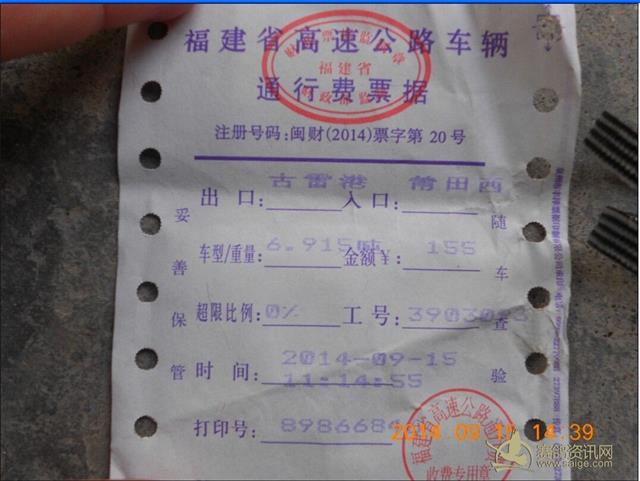 福建省高速公路车辆
福建省
通行费票据
注册号码:闽财(2014)票字第 20 号
古雷港 莆田西
出口: 入口:
车型/重量: 6.915吨 金额¥: 155
超限比例: 0% 工号: 3903023
时间: 2014-09-15
11:14:55
打印号: 898668
妥善保管
随车查验
福建省高速公路
收费专用章
2014.09.16 14:39
赛鸽资讯网
www.saige.com